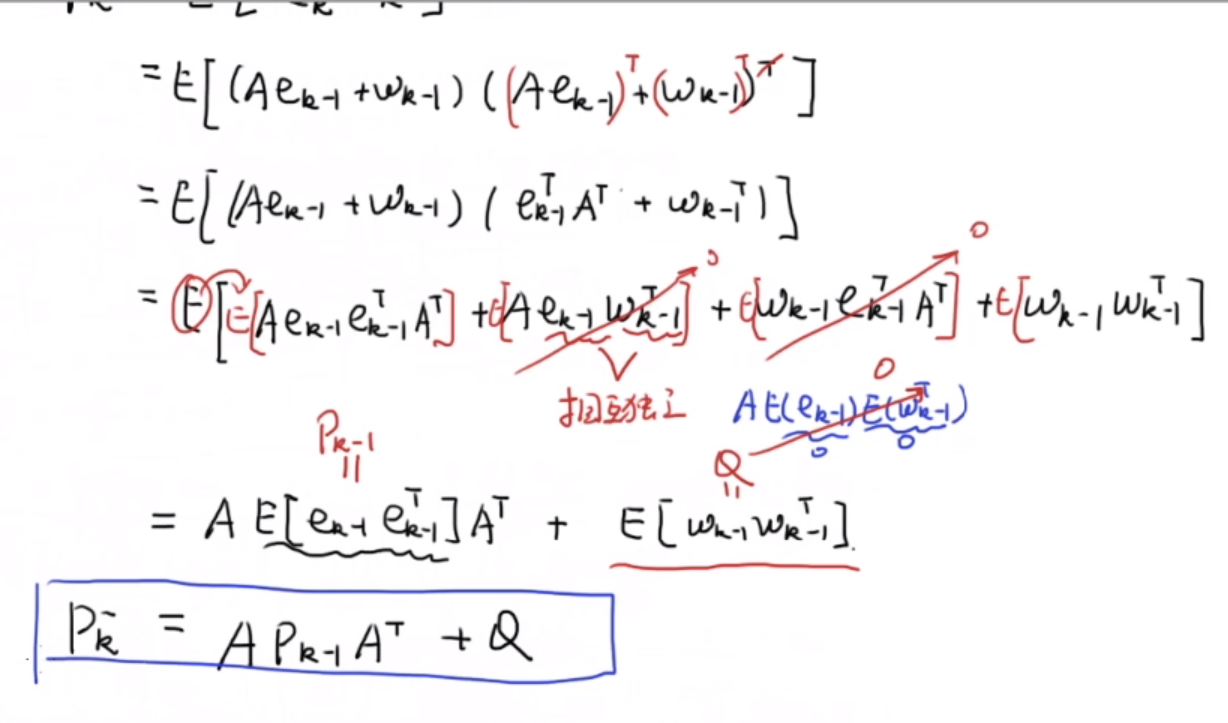 = E[(Ae_{k-1} + w_{k-1})((Ae_{k-1})^T + (w_{k-1})^T)^T]
= E[(Ae_{k-1} + w_{k-1})(e_{k-1}^T A^T + w_{k-1}^T)]
0 0
= E[E[Ae_{k-1}e_{k-1}^T A^T] + E[Ae_{k-1}w_{k-1}^T] + E[w_{k-1}e_{k-1}^T A^T] + E[w_{k-1}w_{k-1}^T]
0
相互独立 AE(e_{k-1})E(w_{k-1}^T)
0 0
P_{k-1} Q
= A E[e_{k-1}e_{k-1}^T]A^T + E[w_{k-1}w_{k-1}^T]
P_k^- = A P_{k-1} A^T + Q